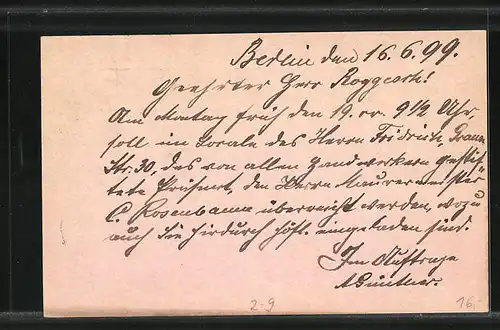 Berlin den 16.6.99.
Geehrter Herr
Am Montag früh den 19. cr. 9 1/2 Uhr,
soll im Locale des Herrn Fridrich,
Str. 30, das von allen Handwerkern gestif
tete Präsent, den Herrn Maurermeister
C. Rosenbaum überreicht werden, wozu
auch Sie hirdurch höfl. eingeladen sind.
Im Auftrage
2-9 16.-